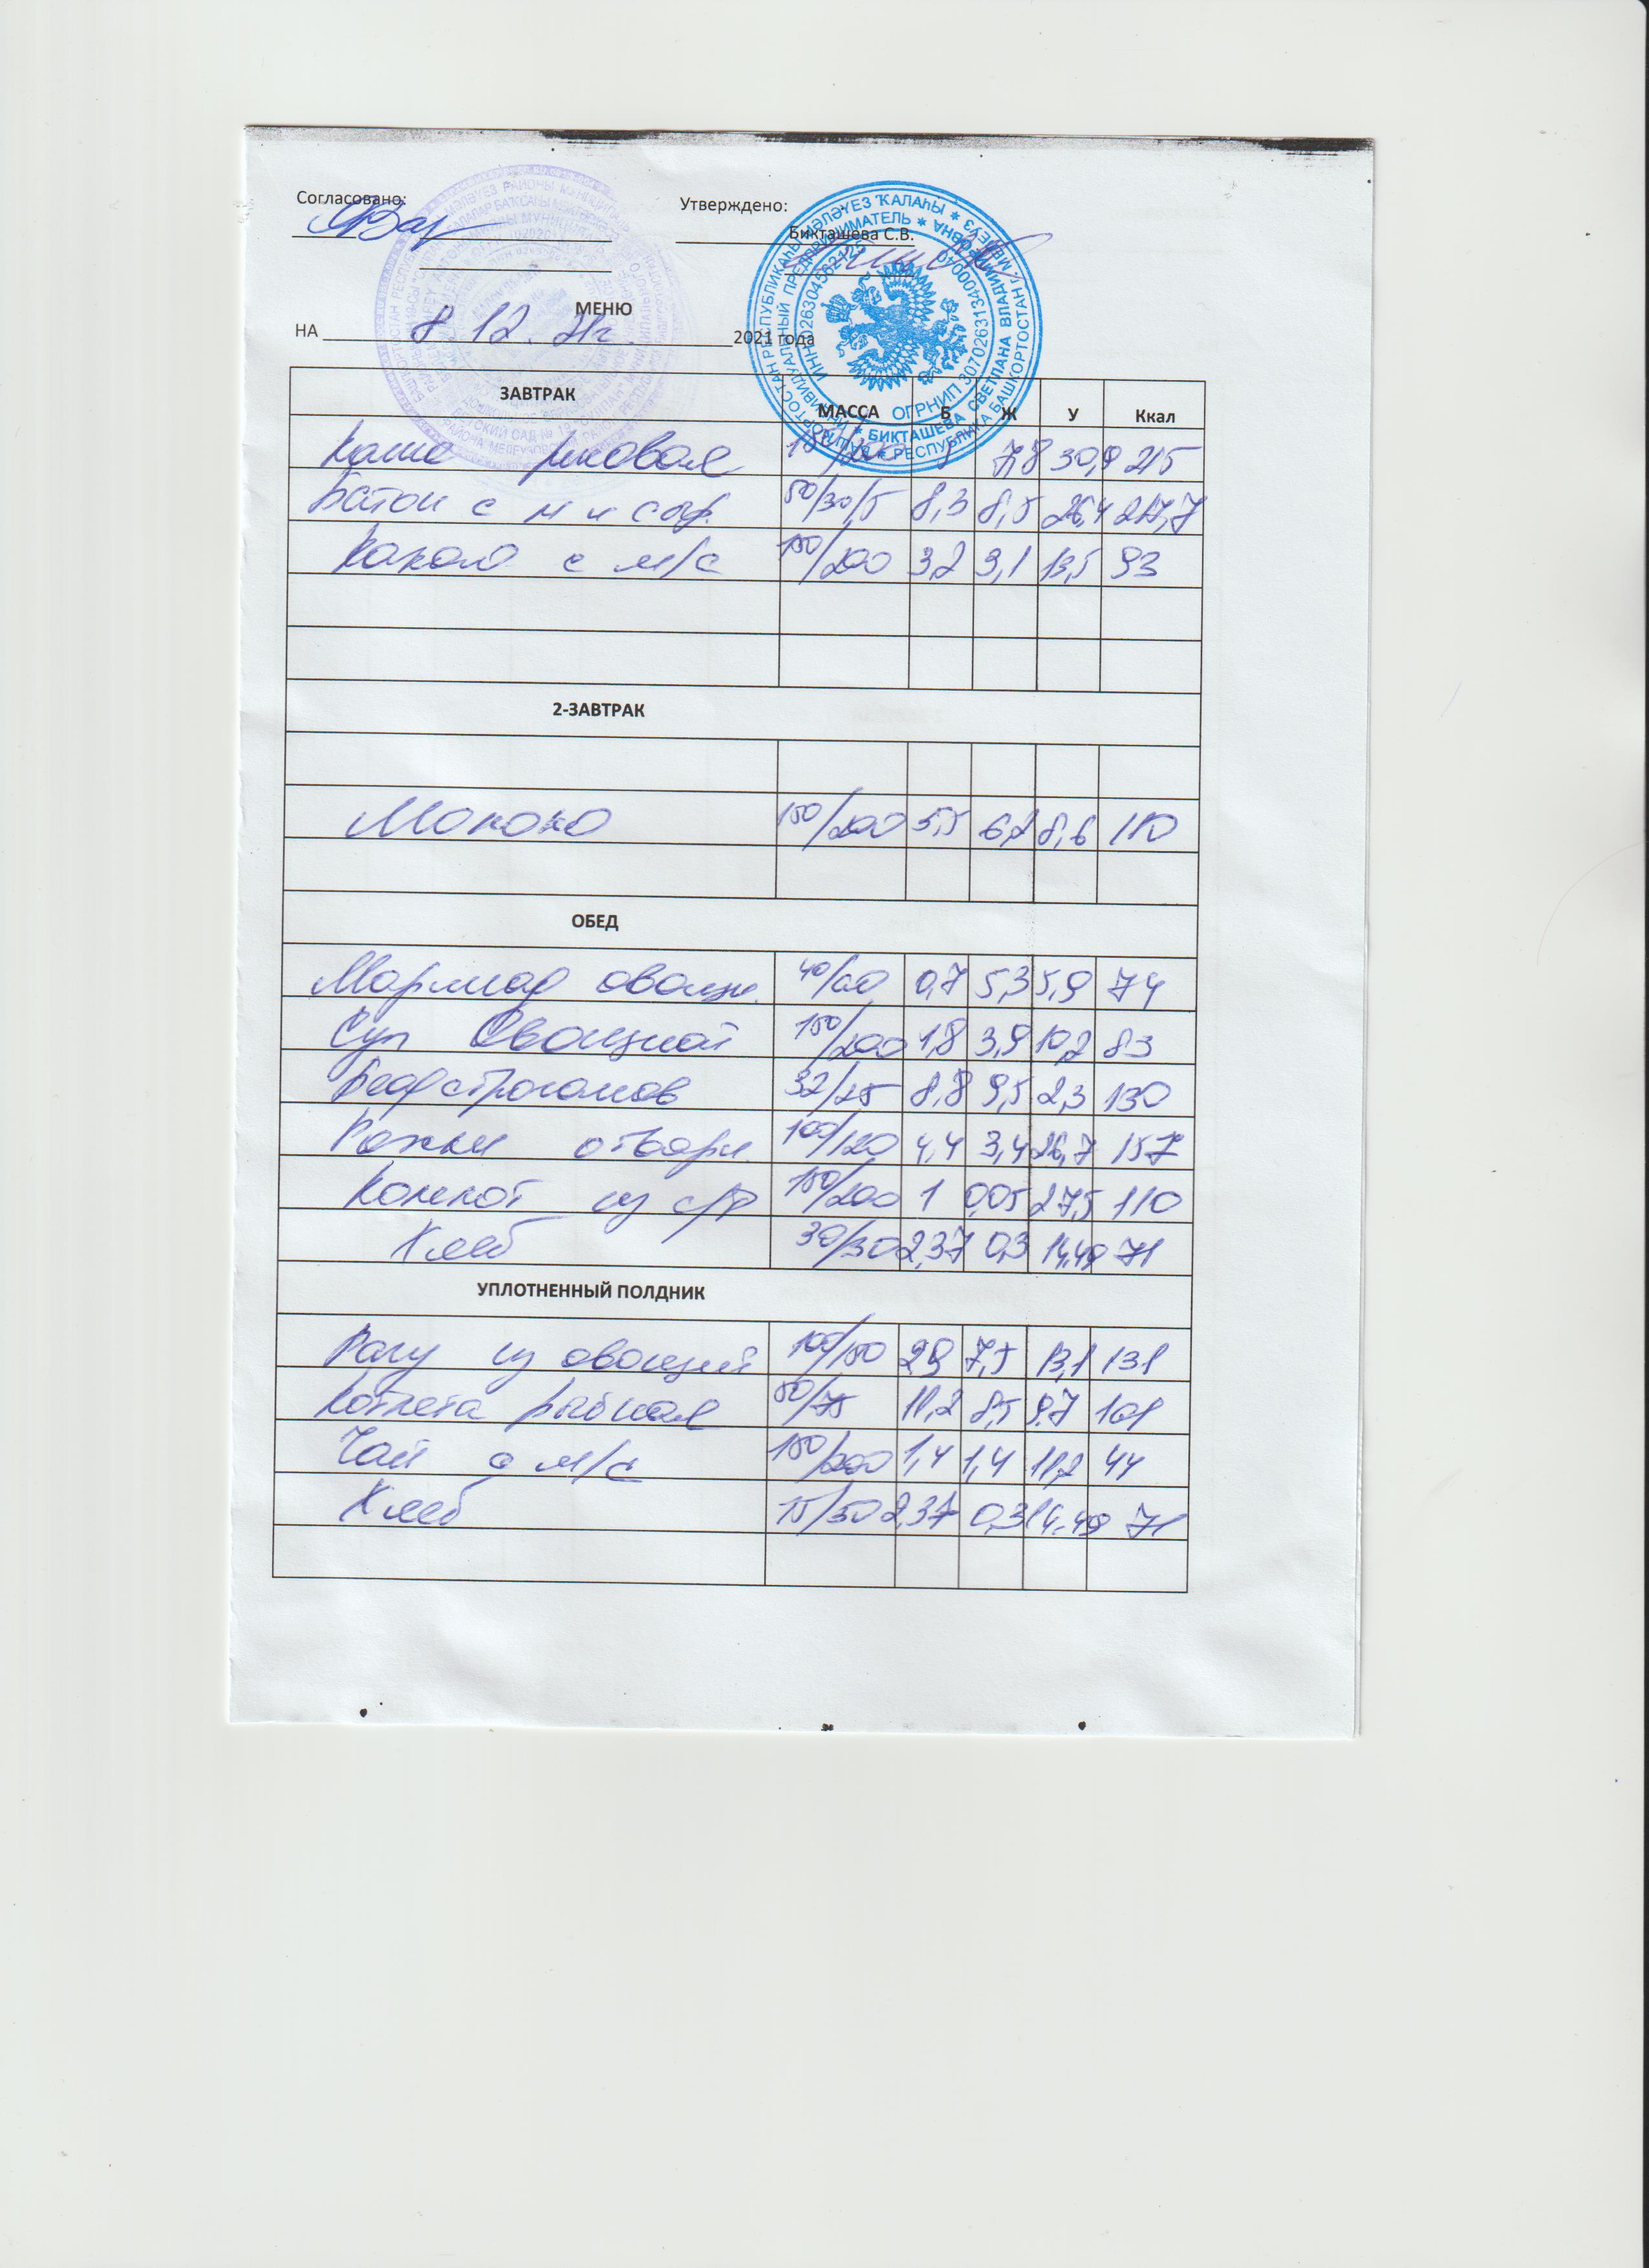 Согласовано:
Утверждено:
Бикташева С.В.
МЕНЮ
НА 8 12. 21г. 2021 года
ЗАВТРАК МАССА Б Ж У Ккал
Каша рисовая 150/200 7,8 30,9 215
Батон с м и сыр. 50/30/5 8,3 8,5 26,4 217,7
Какао с м/с 150/200 3,2 3,1 13,5 93
2-ЗАВТРАК
Молоко 150/200 5,5 6,2 8,6 110
ОБЕД
овощн. 40/60 0,7 5,3 5,9 74
Суп Овощной 150/200 1,8 3,9 10,2 83
Бефстроганов 32/25 8,8 9,5 2,3 130
Рожки отварн. 100/120 4,4 3,4 26,7 157
Компот из с/ф 150/200 1 0,05 27,5 110
Хлеб 30/30 2,37 0,3 14,49 71
УПЛОТНЕННЫЙ ПОЛДНИК
Рагу из овощей 100/150 2,9 7,5 13,1 131
Котлета рыбная 50/75 11,2 8,5 9,7 101
Чай с м/с 150/200 1,4 1,4 11,2 44
Хлеб 15/30 2,37 0,3 14,49 71
ИНДИВИДУАЛЬНЫЙ ПРЕДПРИНИМАТЕЛЬ * БИКТАШЕВА СВЕТЛАНА ВЛАДИМИРОВНА *
РЕСПУБЛИКА БАШКОРТОСТАН Г. МЕЛЕУЗ *
ИНН 026304562125